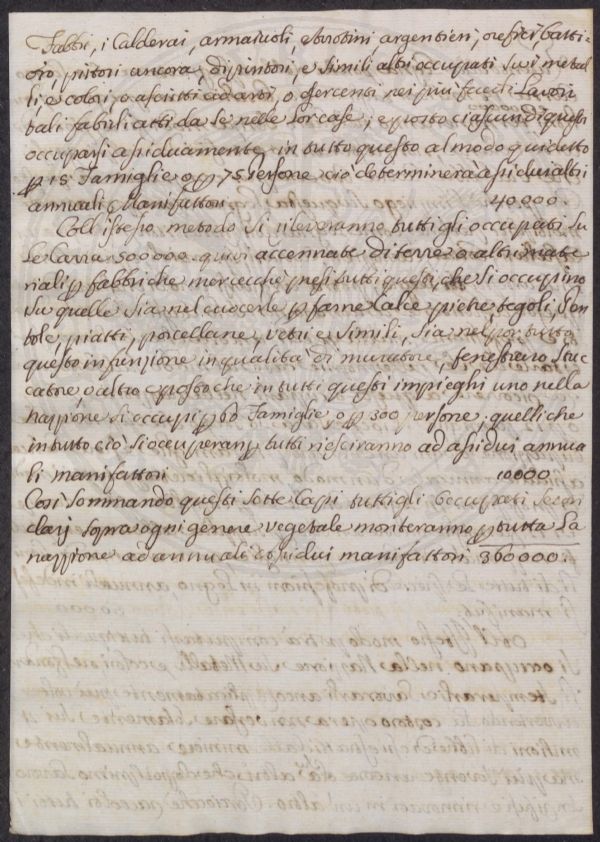 Fabbri, i Calderai, armaiuoli, ottonini argentieri, orefici, batti=
oro, pittori ancora, dipintori e simili altri occupati su i metal=
li e colori, o asciutti ad arti, o esercenti nei più faceti lavori
tali fabricatti da se nelle lor case; e posto ciascun di questi
occuparsi assiduamente in tutto questo al modo qui detto
p 15 Famiglie o p 75 Persone ciò determinerà assidui altri
annuali Manifattori 40000
Coll'istesso metodo si rileveranno tutti gli occupati su
le carra 500000 quivi accennate di terre o altri mate
riali p fabbriche mercecchè presi tutti questi che si occupino
su quelle sia nel cuocerle p farne calce pietre tegoli, pen
tole, piatti, porcellane, vetri e simili, sia nel por tutto
questo in funzione in qualità di muratore, fenestraro stuc
catore, o altro e posto che in tutti questi impieghi uno nella
nazione si occupi p 60 Famiglie, o p 300 persone; quelli che
in tutto ciò si occuperan p tutti riesciranno ad assidui annua
li manifattori 10000
Così sommando questi sette capi tutti gli occupati secon
darj sopra ogni genere vegetale monteranno p tutta la
nazzione ad annuali assidui manifattori 360000.